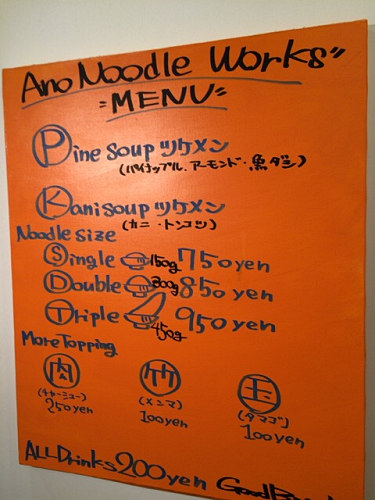 Ano Noodle Works"
"MENU"
Pine Soup ツケメン
(パイナップル、アーモンド・魚ダシ)
Kani soup ツケメン
(カニ・トンコツ)
Noodle size
Single 150g 750yen
Double 300g 850yen
Triple 450g 950yen
More Topping
肉 竹 玉
(チャーシュー) (メンマ) (タマゴ)
250yen 100yen 100yen
ALL Drinks 200yen Good